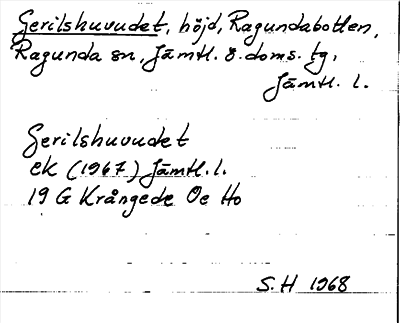 Gerilshuvudet, höjd, Ragundabotten,
Ragunda sn, Jämtl. ö. doms. tg,
Jämtl. l.
Gerilshuvudet
ek (1967) Jämtl. l.
19 G Krångede Oe Ho
S. H 1968